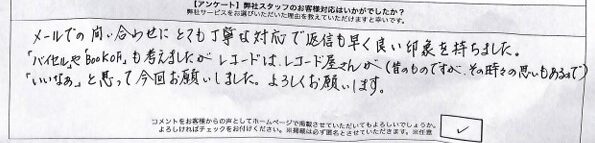 【アンケート】弊社スタッフのお客様対応はいかがでしたか?
弊社サービスをお選びいただいた理由を教えていただけますと幸いです。
メールでの問い合わせにとても丁寧な対応で返信も早く良い印象を持ちました。
「バイセル」や「BOOKOFF」も考えましたがレコードは、レコード屋さんが(昔のものですが、その時々の思いもあるので)
「いいなぁ」と思って今回お願いしました。よろしくお願いします。
コメントをお客様からの声としてホームページで掲載させていただいてもよろしいでしょうか。
よろしければチェックをお付けください。※掲載は必ず匿名とさせていただきます。※任意
✓